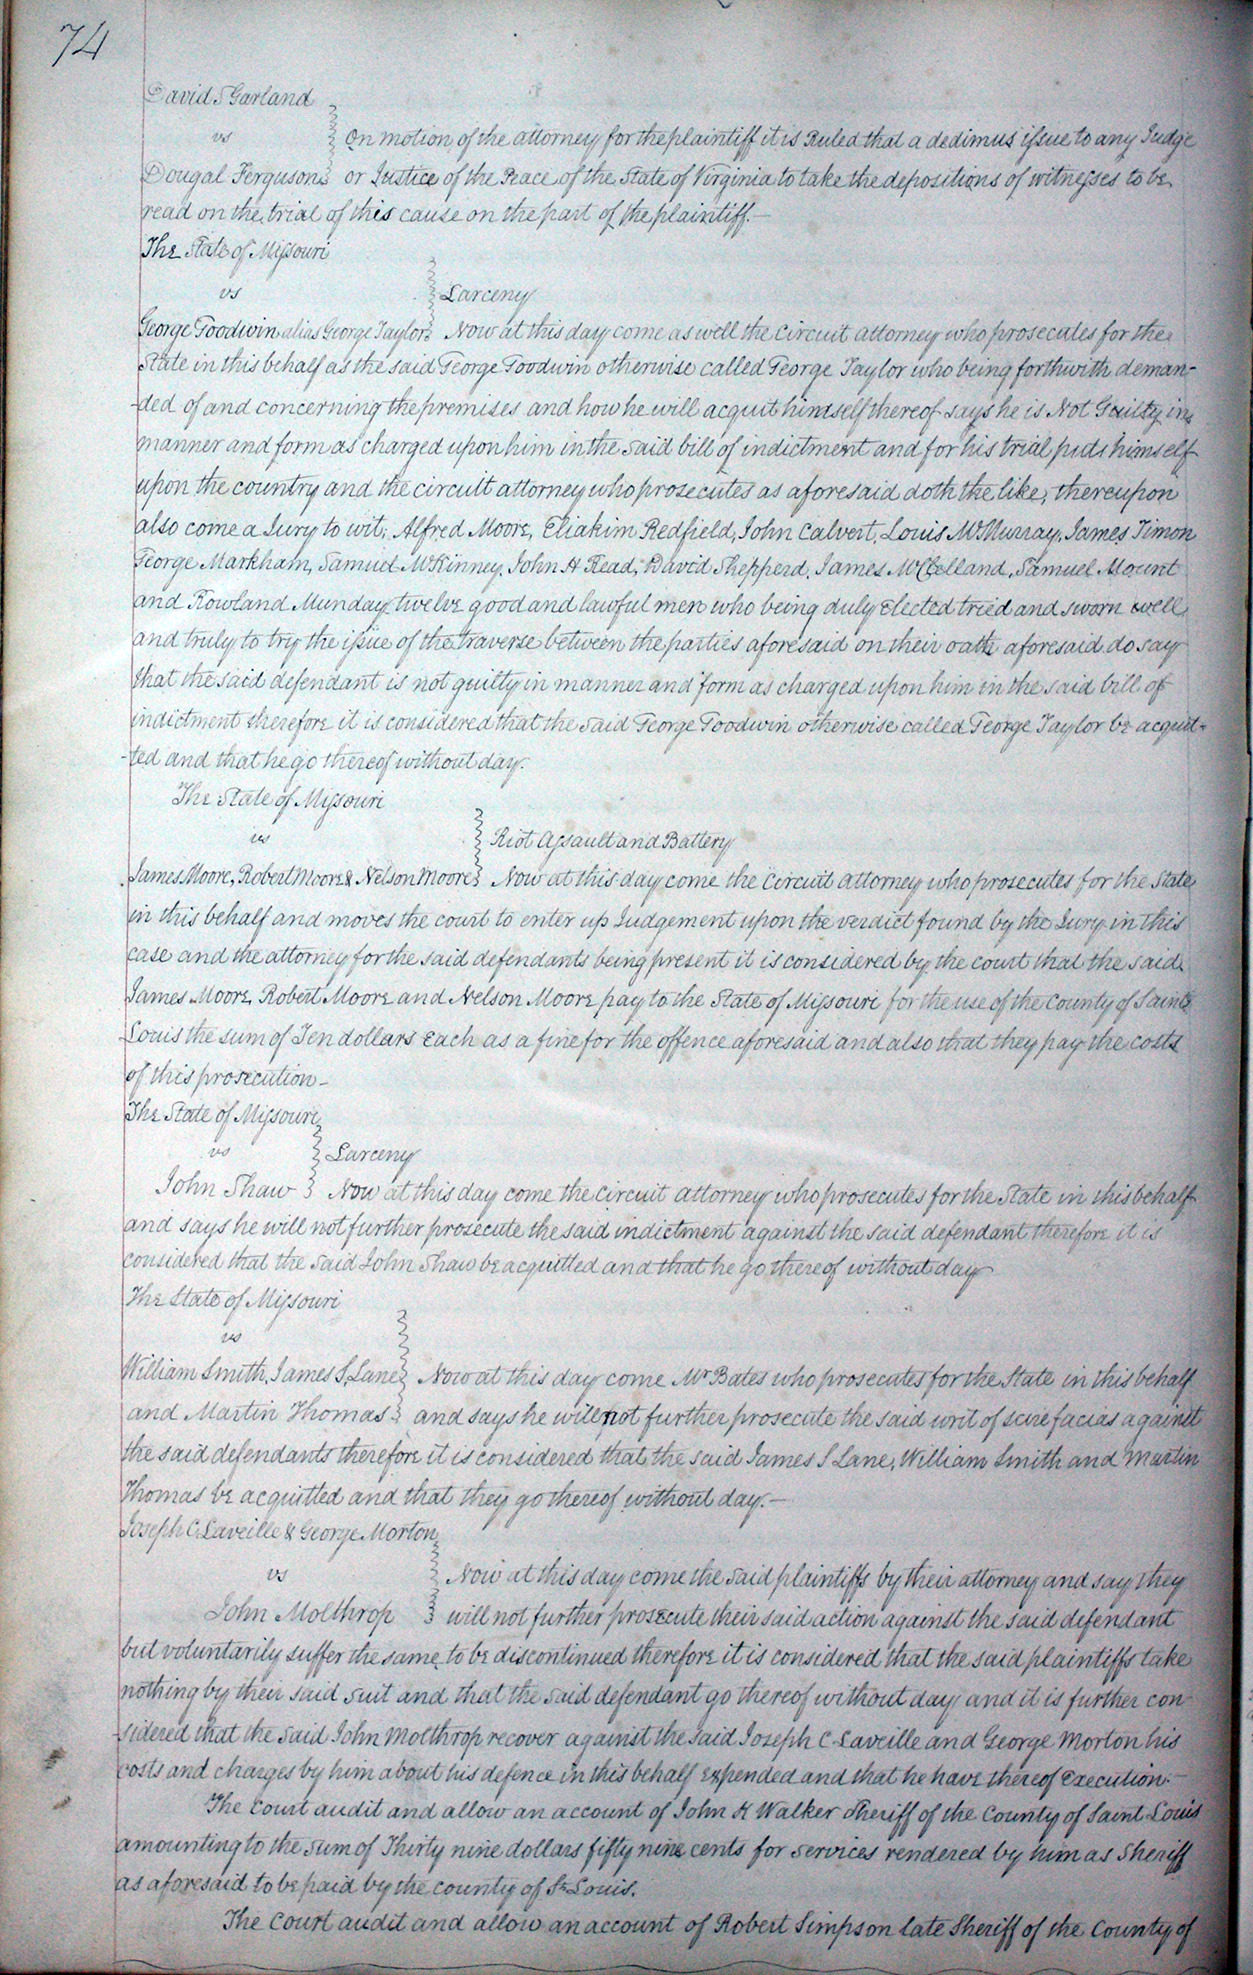 74
David S Garland
vs
On motion of the attorney for the plaintiff it is Ruled that a dedimus issue to any Judge
Dougal Ferguson or Justice of the Peace of the State of Virginia to take the depositions of witnesses to be
read on the trial of this cause on the part of the plaintiff.—
The State of Missouri
vs
Larceny
George Goodwin alias George Taylor Now at this day come as well the circuit attorney who prosecutes for the
State in this behalf as the said George Goodwin otherwise called George Taylor who being forthwith deman-
-ded of and concerning the premises and how he will acquit himself thereof says he is Not Guilty in
manner and form as charged upon him in the said bill of indictment and for his trial puts himself
upon the country and the circuit attorney who prosecutes as aforesaid doth the like, thereupon
also come a Jury to wit; Alfred Moore, Eliakim Redfield, John Calvert, Louis McMurray, James Timon
George Markham, Samuel McKinney, John H Read, David Shepperd, James McClelland, Samuel Mount
and Rowland Munday, twelve good and lawful men who being duly elected tried and sworn well
and truly to try the issue of the traverse between the parties aforesaid on their oath aforesaid do say
that the said defendant is not guilty in manner and form as charged upon him in the said bill of
indictment therefore it is considered that the said George Goodwin otherwise called George Taylor be acquit-
-ted and that he go thereof without day.
The State of Missouri
vs
Riot Assault and Battery
James Moore, Robert Moore & Nelson Moore Now at this day come the circuit attorney who prosecutes for the State
in this behalf and moves the court to enter up Judgement upon the verdict found by the Jury in this
case and the attorney for the said defendants being present it is considered by the court that the said
James Moore, Robert Moore and Nelson Moore pay to the State of Missouri for the use of the County of Saint
Louis the sum of Ten dollars each as a fine for the offence aforesaid and also that they pay the costs
of this prosecution—
The State of Missouri
vs
Larceny
John Shaw Now at this day come the circuit attorney who prosecutes for the State in this behalf
and says he will not further prosecute the said indictment against the said defendant therefore it is
considered that the said John Shaw be acquitted and that he go thereof without day
The State of Missouri
vs
William Smith, James S. Lane Now at this day come Mr Bates who prosecutes for the State in this behalf
and Martin Thomas and says he will not further prosecute the said writ of scire facias against
the said defendants therefore it is considered that the said James S Lane, William Smith and Martin
Thomas be acquitted and that they go thereof without day.—
Joseph C. Laveille & George Morton
vs
Now at this day come the said plaintiffs by their attorney and say they
John Molthrop will not further prosecute their said action against the said defendant
but voluntarily suffer the same to be discontinued therefore it is considered that the said plaintiffs take
nothing by their said suit and that the said defendant go thereof without day and it is further con
-sidered that the said John Molthrop recover against the said Joseph C. Laveille and George Morton his
costs and charges by him about his defence in this behalf expended and that he have thereof execution.—
The Court audit and allow an account of John K Walker Sheriff of the County of Saint Louis
amounting to the sum of Thirty nine dollars fifty nine cents for services rendered by him as Sheriff
as aforesaid to be paid by the county of St Louis.
The Court audit and allow an account of Robert Simpson late Sheriff of the County of